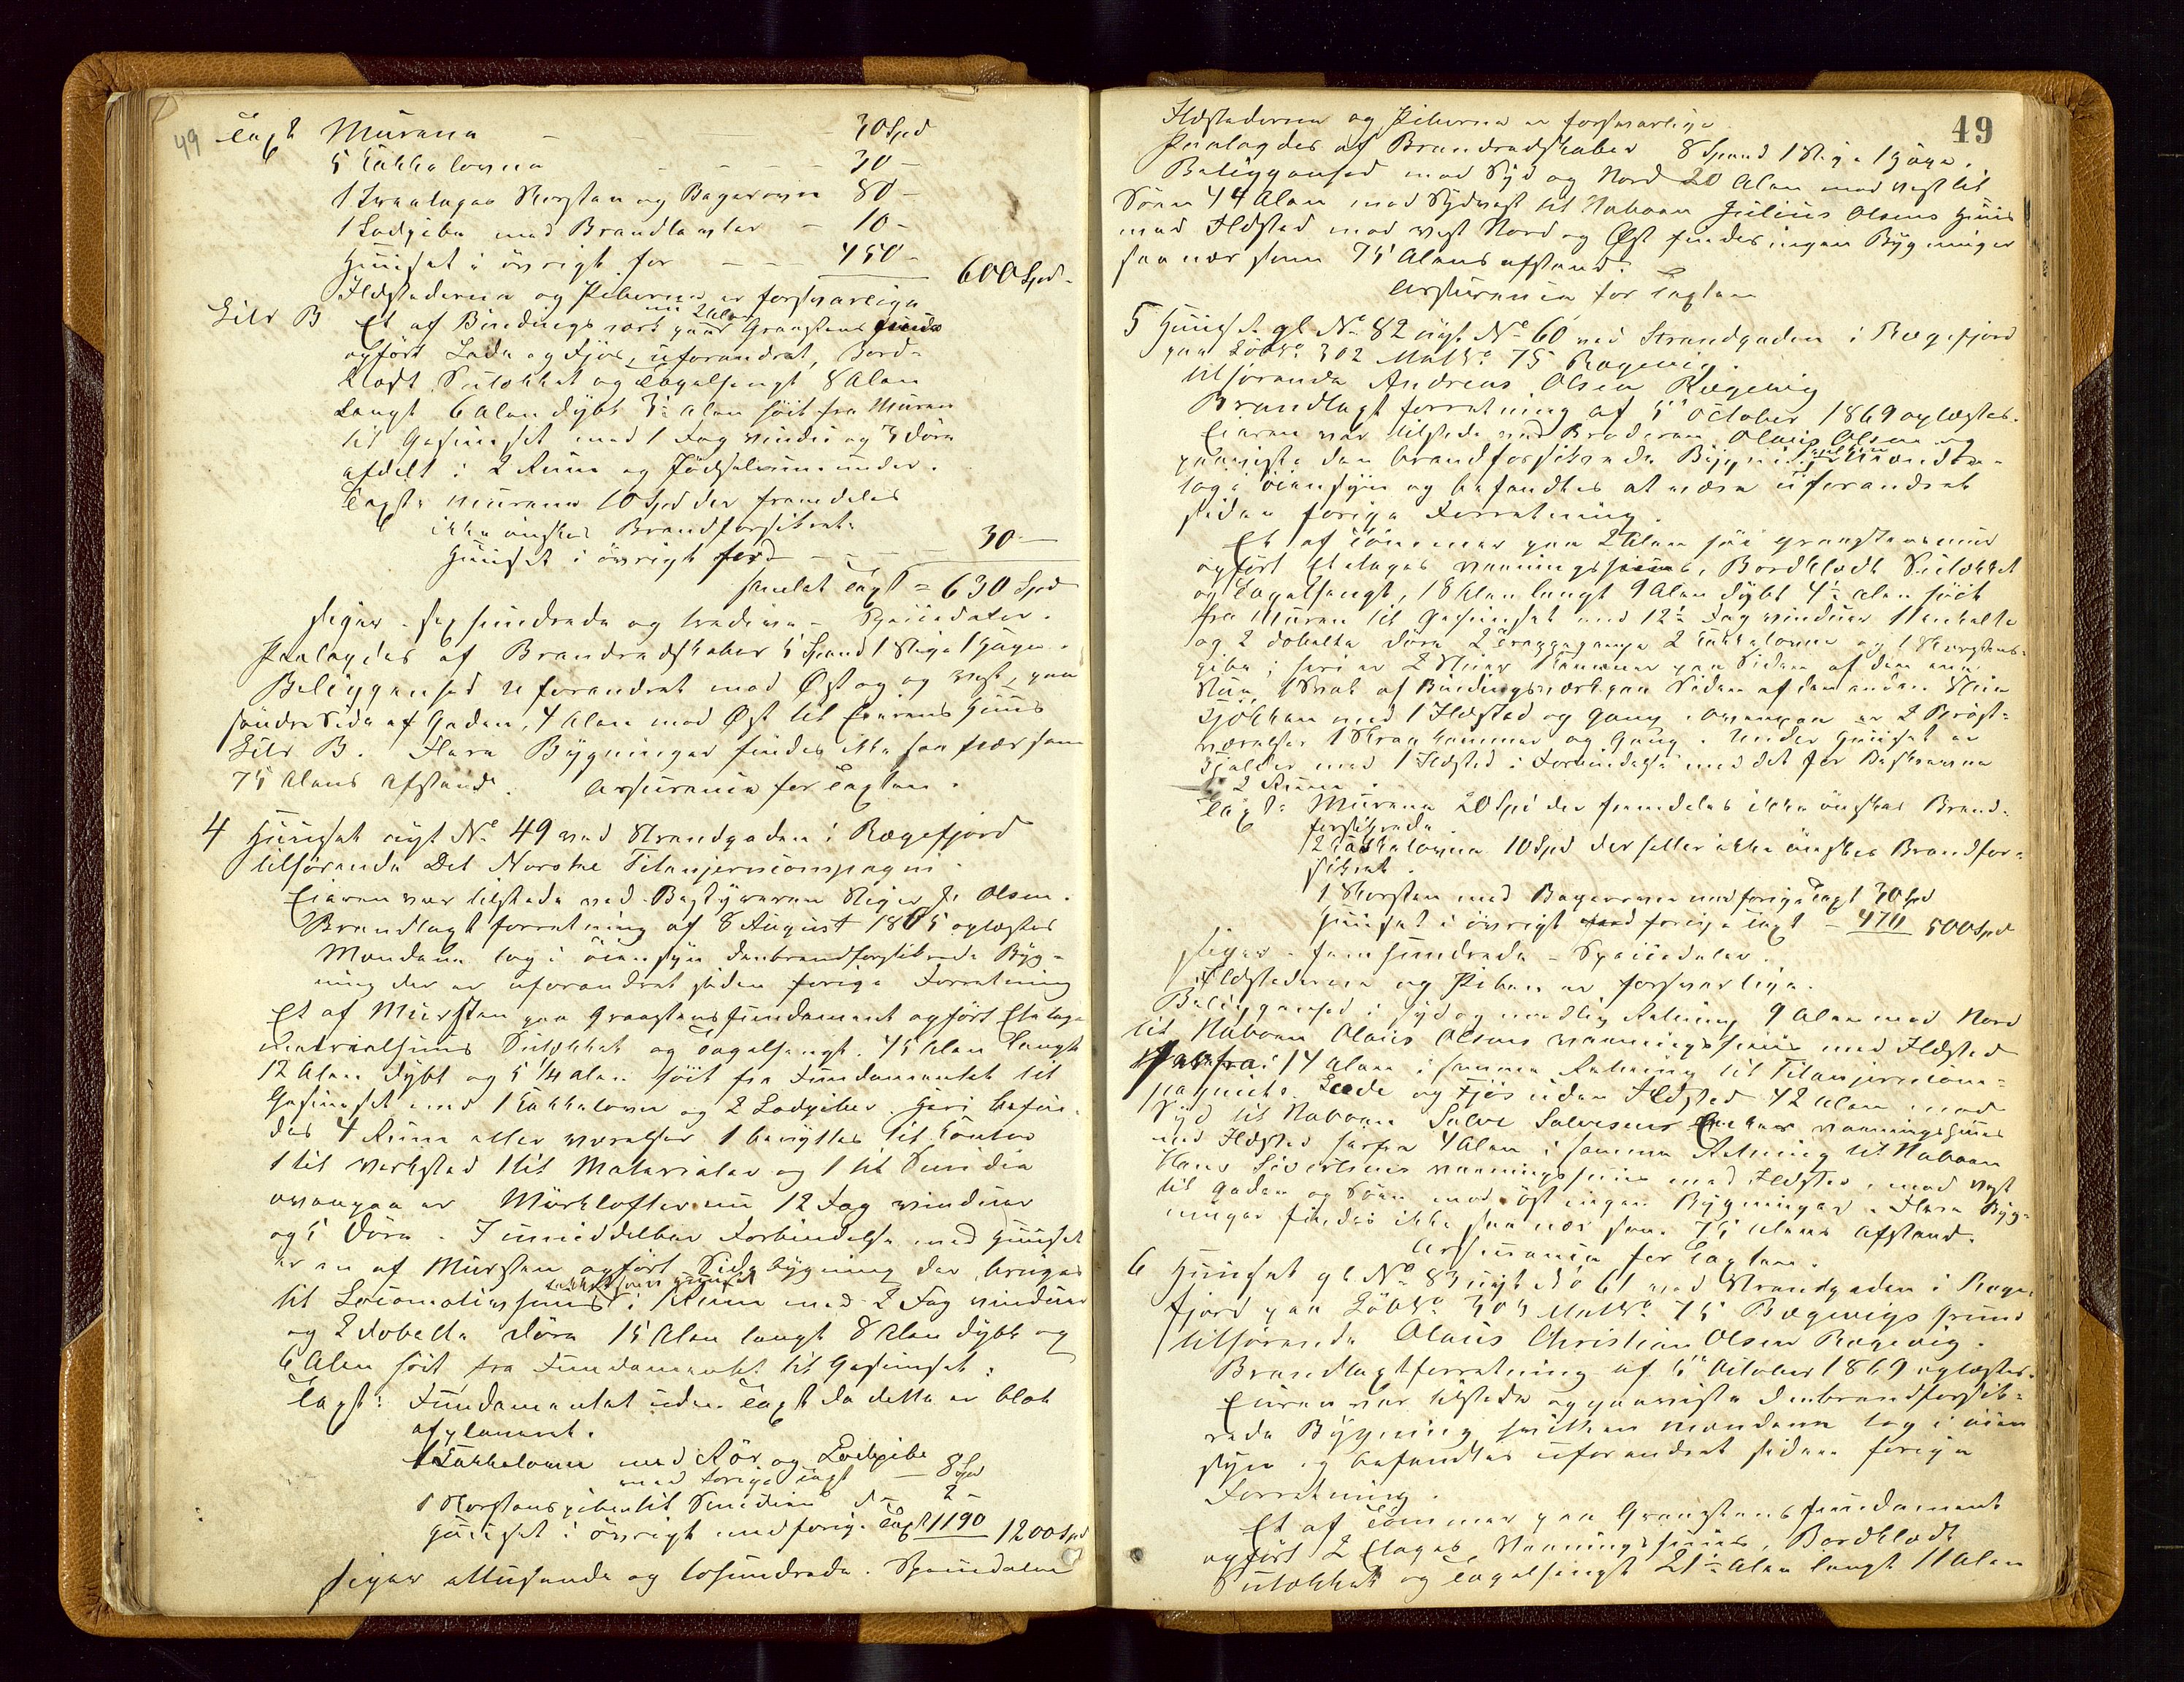 49 Taxt Murene - - - 30 Spd
5 Kakkelovne - - - 30 -
1 Toetages Skorsten og Bagerovn 80 -
1 Lodpibe med Brandtavler - 10 -
Huuset i övrigt for - - - 450 - 600 Spd -
Ildstederne og Piberne er forsvarlige
Litr B Et af Bindingsværk paa nu 2 Alen Graastens
opfört Lade og Fjös, uforandret, Bord-
klædt Sutækket og Tagelhængt 8 Alen
Langt 6 Alen dybt 3½ Alen höit fra Muren
til Gesimset med 1 Fag vindu og 3 döre
afdelt i 2 Rum og Födselrum under.
Taxt: Murene 10 Spd der fremdeles
ikke önskes Brandforsikret.
Huuset i övrigt for - - - 30 -
samlet Taxt = 630 Spd
siger - sex hundrede og tredive - Speciedaler.
Paalagdes af Brandredskaber 5 Spand 1 Stige 1 Hage.
Beliggenhed uforandret mod Öst og vest, paa
söndre Side af Gaden, 4 Alen mod Öst til Eierens Huus
Litr B. Flere Bygninger findes ikke saa nær som
75 Alens Afstand. Assurance for Taxten.
4 Huuset nyt No 49 ved Strandgaden i Rægefjord
tilhörende Det Norske Titanjerncompagni.
Eieren var tilstede ved Bestyreren Stiger J. Olsen.
Brandtaxtforretning af 8 August 1865 oplæstes
Mændene tog i öiensyn den brandforsikrede Byg-
ning der er uforandret siden forige Forretning
Et af Mursten paa Graastensfundament opfört Etetages
Materialhuus Sutækket og Tagelhængt. 45 Alen Langt
12 Alen dybt og 5 1/4 Alen höit fra Fundamentet til
Gesimset med 1 Kakkelovn og 2 Lodpiber. Heri befin-
des 4 Rum eller værelser 1 benyttes til Contor
1 til Verksted 1 til Materialer og 1 til Smidie
ovenpaa er Mörkloft nu 12 Fag vinduer
og 5 Döre. I umiddelbar Forbindelse med Huuset
er en af Mursten opfört Sidebygning der bruges
til Locomotivhuus i 1 Rum med 2 Fag vinduer
og 2 dobelte Döre 15 Alen langt 8 Alen dybt og
6 Alen höit fra Fundamentet til Gesimset:
Taxt: Fundamentet uden Taxt da dette er blot
afplaneret.
1 Kakkelovn med Rör og Lodpibe
med forige Taxt - 8 Spd
1 Skorstenspibe til Smidien d - 2 -
Huuset i övrigt med forige Taxt 1190 1200 Spd
siger ettusende og tohundrede. Speciedaler
49
Ildstederne og Piberne er forsvarlige
Paalagdes af Brandredskaber 8 Spand 1 Stige 1 Hage.
Beliggenhed mod Syd og Nord 20 Alen mod vest til
Söen 44 Alen mod Sydvest til Naboen Julius Olsens Huus
med Ildsted mod vest Nord og Öst findes ingen Bygninger
saa nær som 75 Alens afstand.
Assurance for Taxten
5 Huuset gl No 82 nyt No 60 ved Strandgaden i Rægefjord
paa LöbNo 302 MatNo 75 Rægevig.
tilhörende Andreas Olsen Rægevig
Brandtaxtforretning af 5te October 1869 oplæstes.
Eieren var tilstede ved Broderen Olaus Olsen og
paaviste den brandforsikrede Bygning Mændene
tog i öiensyn og befandtes at være uforandret
siden forige Forretning.
Et af Tömmer paa 2 Alen höi graastensmuur
opfört Etetages vaaningshuus, Bordklædt Sutækket
og Tagelhængt, 18 Alen langt 9 Alen dybt 4½ Alen höit
fra Muren til Gesimset med 12½ Fag vinduer 1 enkelte
og 2 dobelte döre 2 Trappegange 2 Kakkelovne og 1 Skorstens-
pibe; heri er 2 Stuer 1 Kammer paa Siden af den ene
Stue, 1 Sval af Bindingsværk paa Siden af den anden Stue
Kjökken med 1 Ildsted og Gang. Ovenpaa er 2 Qvist-
værelser 1 Skraakammer og Gang. Under Huuset er
Kjelder med 1 Ildsted i Forbindelse med det for Bagerovne
2 Rum.
Taxt: Murene 20 Spd der fremdeles ikke önskes Brand-
forsikrede
2 Kakkelovne 10 Spd der heller ikke önskes Brandfor-
sikret.
1 Skorsten med Bagerovn med forige Taxt 30 Spd
Huuset i övrigt forige Taxt - 470 500 Spd
siger - femhundrede - Speciedaler.
Ildstederne og Piben er forsvarlige.
Beliggenhed i syd og nordlig Retning 9 Alen mod Nord
til Naboen Olaus Olsens vaaningshuus med Ildsted
herfra: 14 Alen i samme Retning til Titanjerncom-
pagniets Lade og Fjös uden Ildsted 42 Alen mod
Syd til Naboen Salve Salvesens Enkes vaaningshuus
med Ildsted herfra 4 Alen i samme Retning til Naboen
Hans Sivertsens vaaningshuus med Ildsted, mod vest
til Gaden og Söen mod öst ingen Bygninger. Flere Byg-
ninger findes ikke saa nær som 75 Alens Afstand.
Assurance for Taxten.
6 Huuset gl No 83 nyt No 61 ved Strandgaden i Ræge-
fjord paa LöbNo 303 MatNo 75 Rægevigs Grund
tilhörende Olaus Christian Olsen Rægevig.
Brandtaxtforretning af 5te October 1869 oplæstes.
Eieren var tilstede og paaviste den brandforsik-
rede Bygning hvilken Mændene tog i öien
syn og befandtes uforandret siden forige
Forretning.
Et af Tömmer paa Graastensfundament
opfört 2 Etages Vaaningshuus, Bordklædt
Sutækket og Tagelhængt 21½ Alen langt 11 Alen